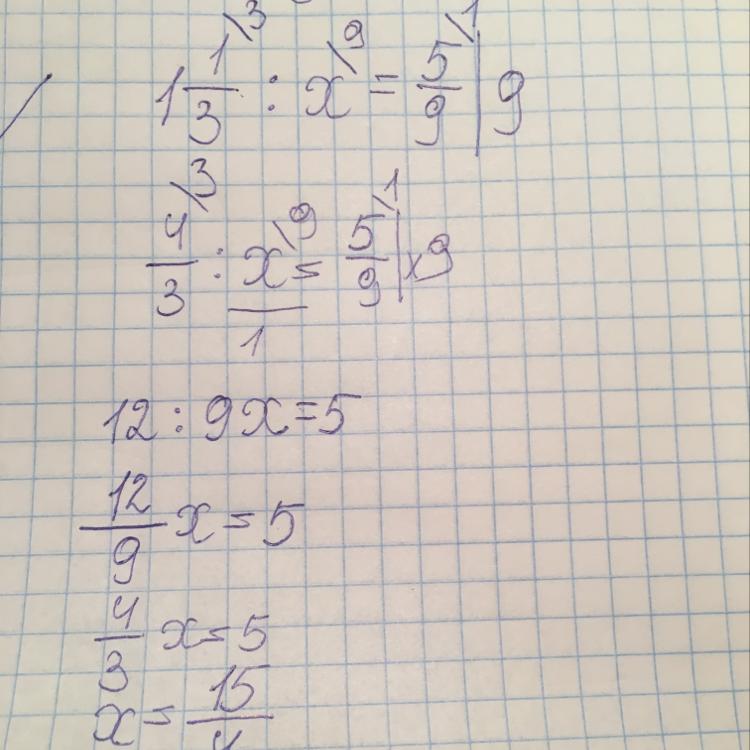 1 1/3 \3 : x \9 = 5/9 \1 | 9
4/3 \3 : x/1 \9 = 5/9 \1 | x9
12 : 9x = 5
12/9 x = 5
4/3 x = 5
x = 15/4